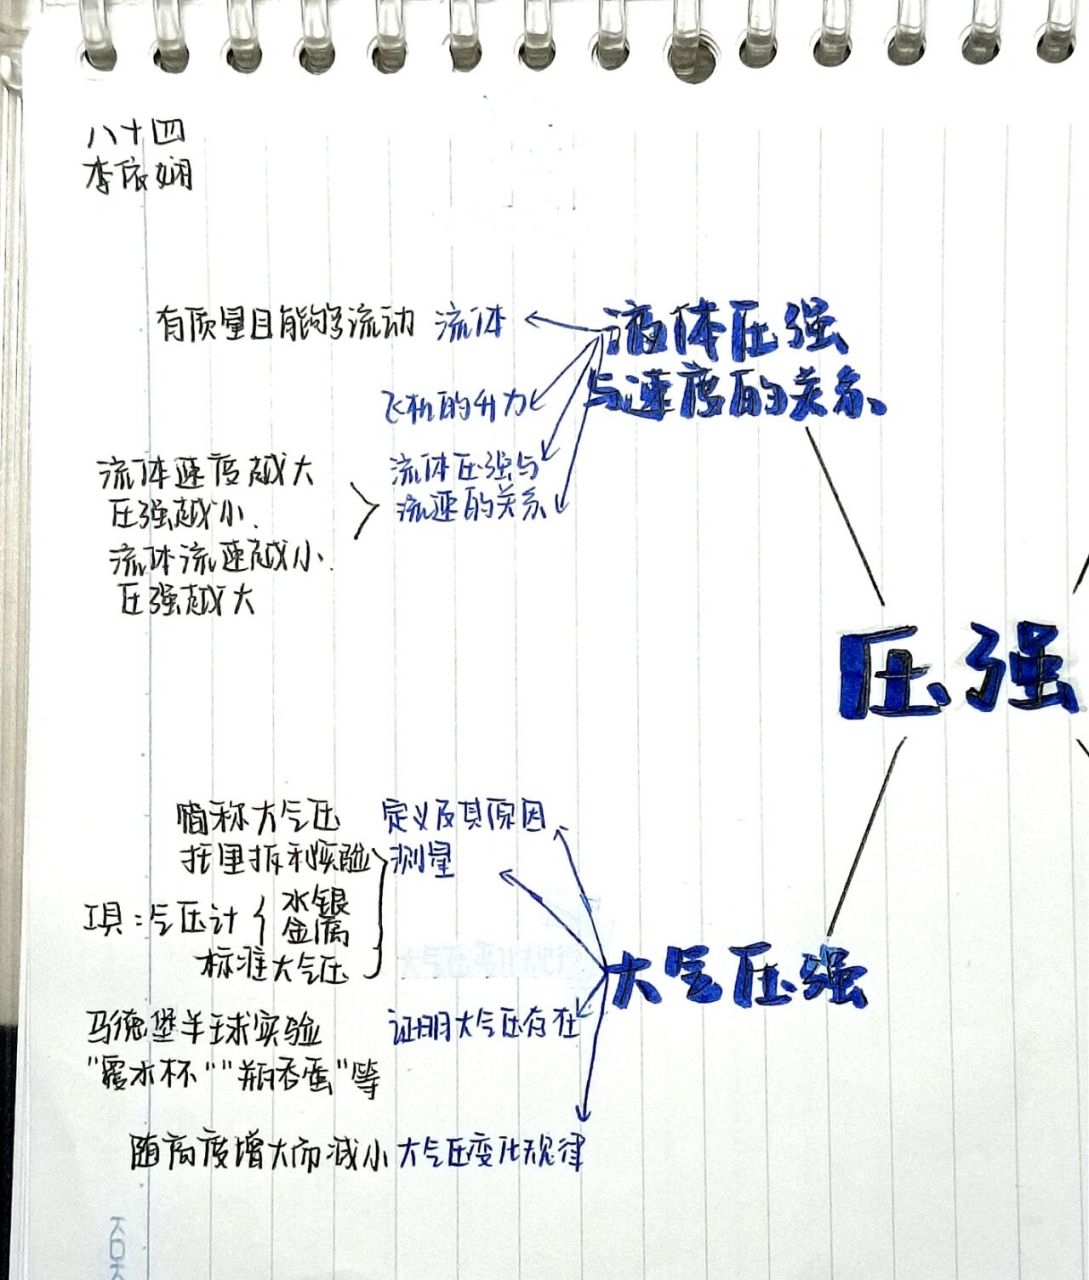 八十四
李依娴
有质量且能够流动 流体
液体压强
与速度的关系
飞机的升力
流体压强与
流速的关系
流体速度越大
压强越小.
流体流速越小.
压强越大
压强
简称大气压 定义及其原因
托里拆利实验 测量
工具：气压计{水银
金属
标准大气压
大气压强
证明大气压存在
马德堡半球实验
"覆水杯""瓶吞蛋"等
随高度增大而减小 大气压变化规律